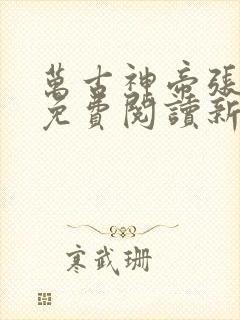 萬古神帝張
免費閱讀新
寒武珊